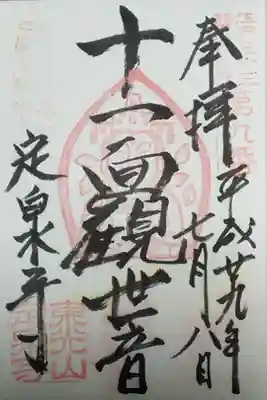 奉拝
平成廿九年
七月八日
十一面觀世音
定泉寺
東光山